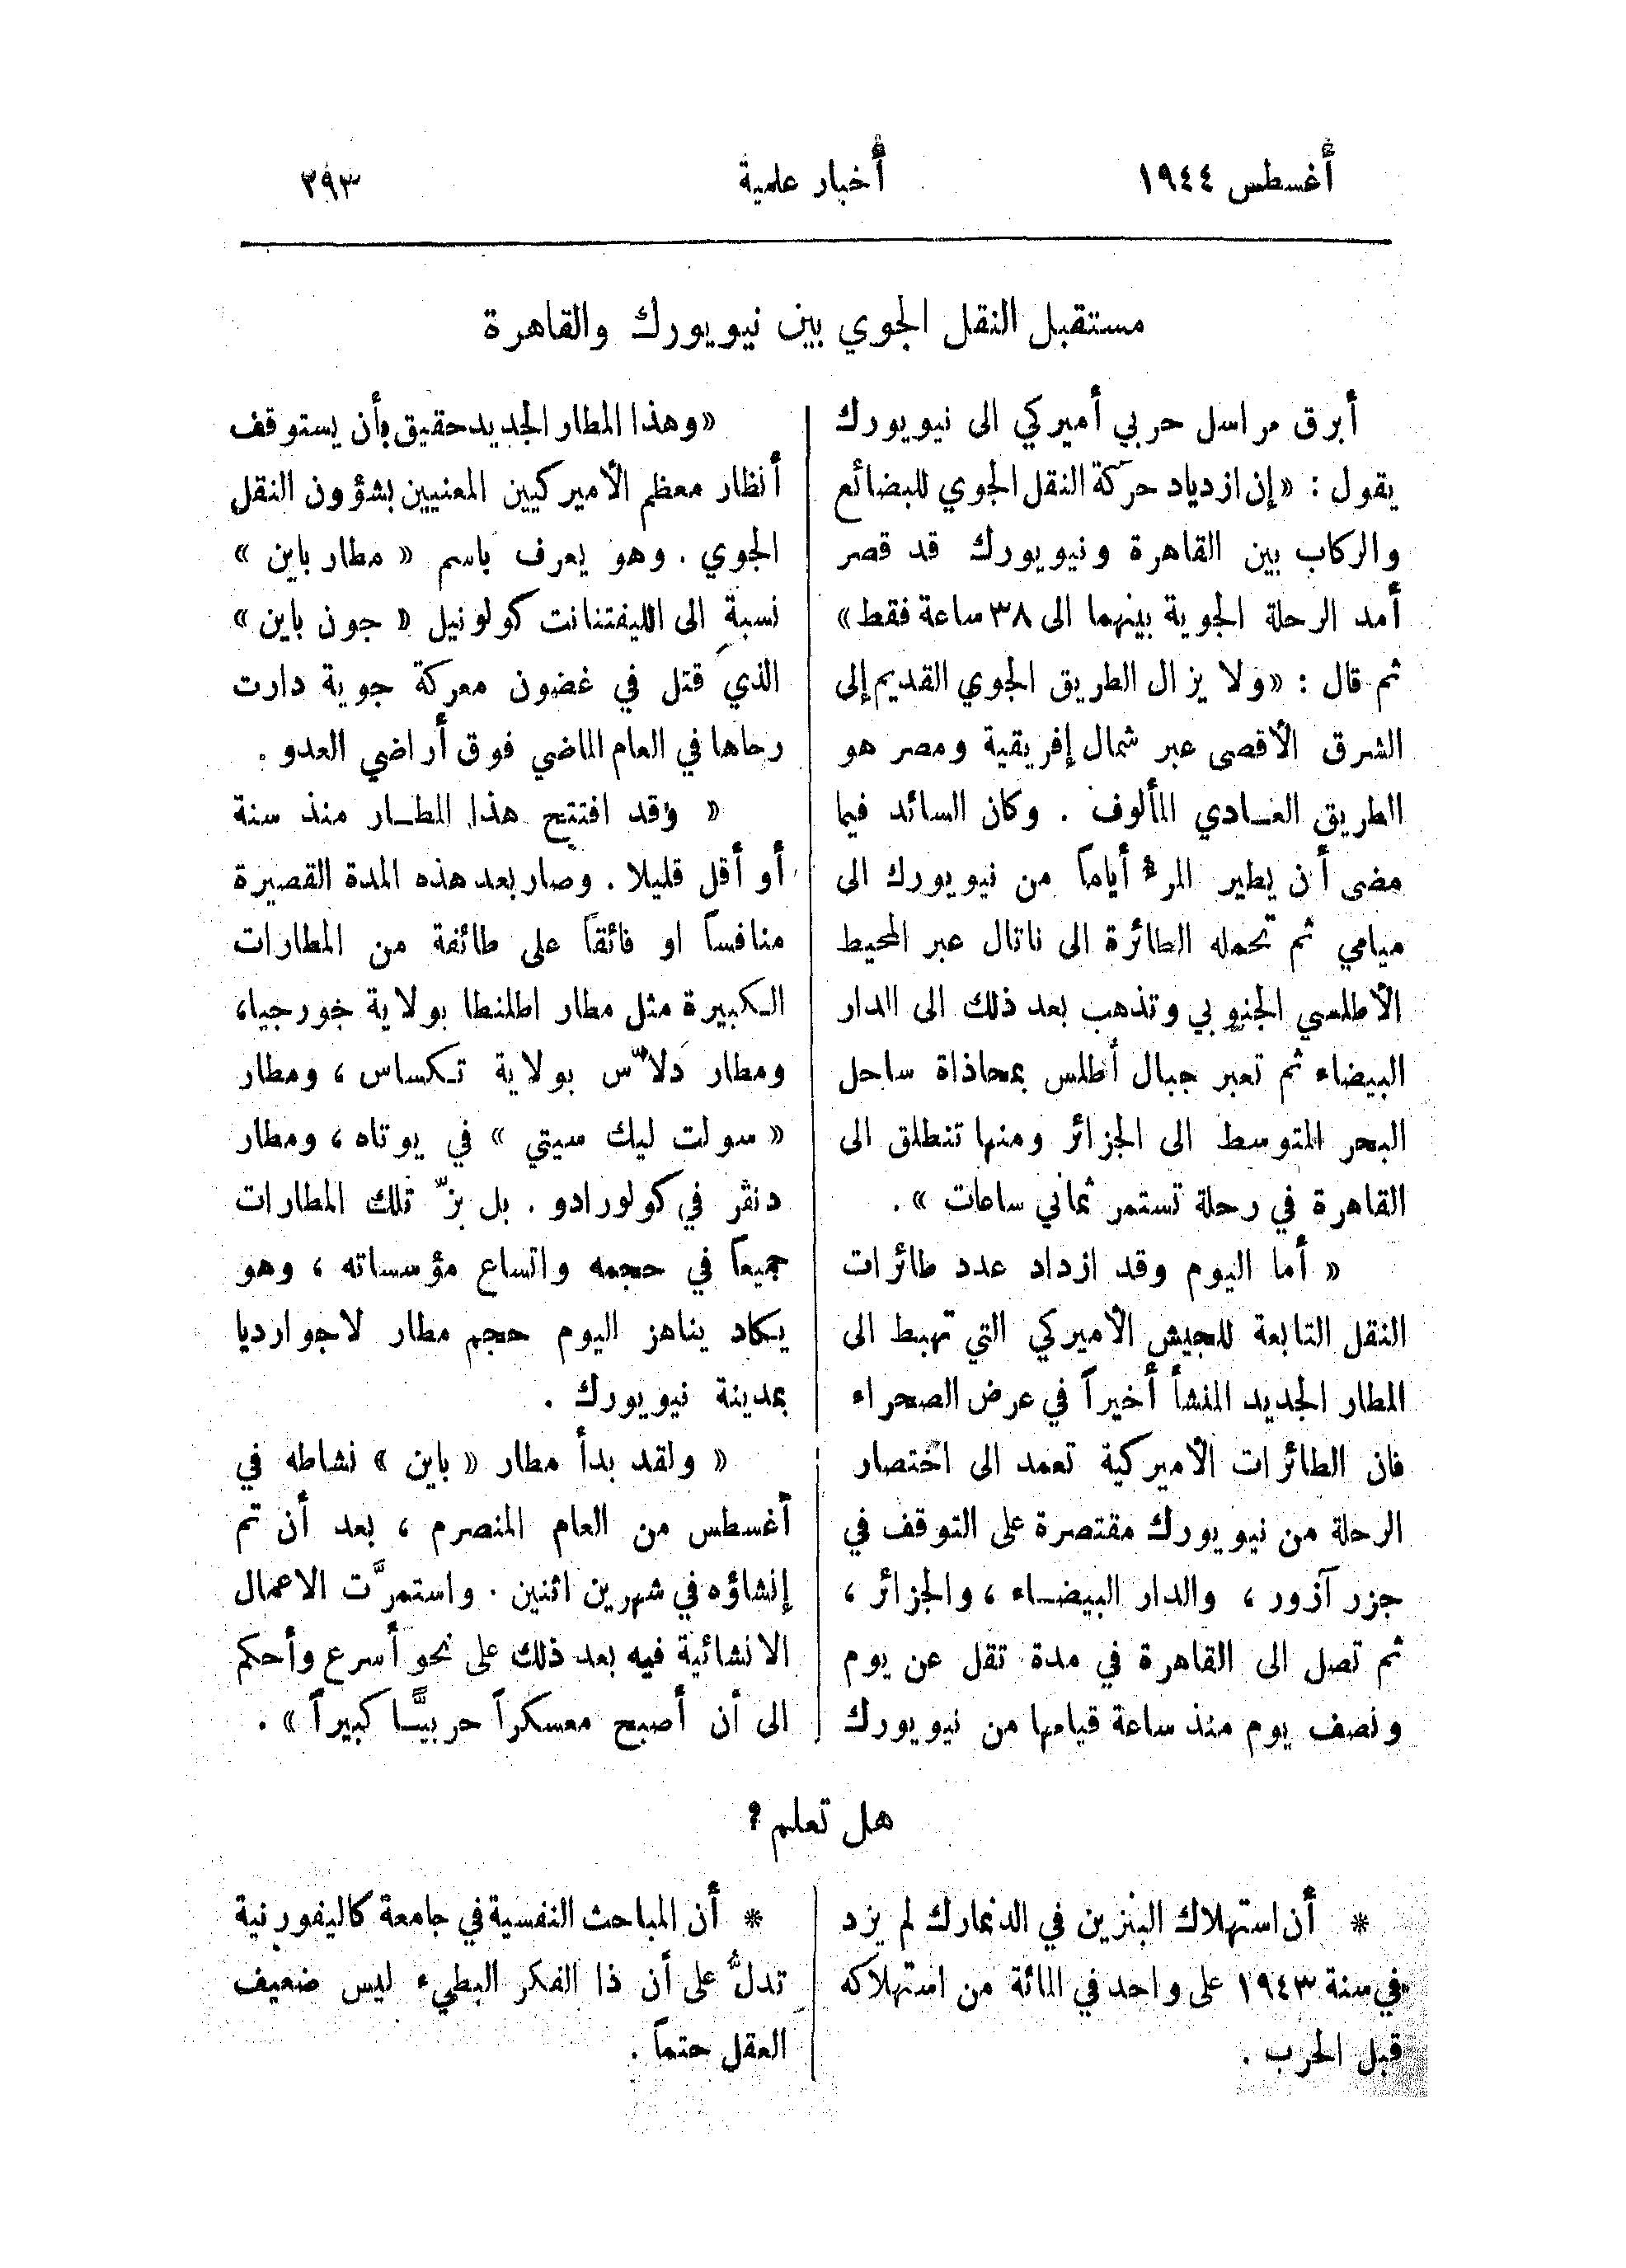 أغسطس ١٩٤٤
أخبار علمية
٣٩٣
مستقبل النقل الجوي بين نيويورك والقاهرة
أبرق مراسل حربي أميركي الى نيويورك
يقول : «إن ازدياد حركة النقل الجوي للبضائع
والركاب بين القاهرة ونيويورك قد قصر
أمد الرحلة الجوية بينهما الى ٣٨ ساعة فقط»
ثم قال : «ولا يزال الطريق الجوي القديم إلى
الشرق الأقصى عبر شمال إفريقية ومصر هو
الطريق العـادي المألوف . وكان السائد فيما
مضى أن يطير المرء أياماً من نيويورك الى
ميامي ثم تحمله الطائرة الى ناتال عبر المحيط
الأطلسي الجنوبي وتذهب بعد ذلك الى الدار
البيضاء ثم تعبر جبال أطلس بمحاذاة ساحل
البحر المتوسط الى الجزائر ومنها تنطلق الى
القاهرة في رحلة تستمر ثماني ساعات » .
« أما اليوم وقد ازداد عدد طائرات
النقل التابعة للجيش الأميركي التي تهبط الى
المطار الجديد المنشأ أخيراً في عرض الصحراء
فان الطائرات الأميركية تعمد الى اختصار
الرحلة من نيويورك مقتصرة على التوقف في
جزر آزور ، والدار البيضـاء ، والجزائر ،
ثم تصل الى القاهرة في مدة تقل عن يوم
ونصف يوم منذ ساعة قيامها من نيويورك
«وهذا المطار الجديد حقيق بأن يستوقف
أنظار معظم الأميركيين المعنيين بشؤون النقل
الجوي . وهو يعرف باسم « مطار باين »
نسبة الى الليفتنانت كولونيل « جون باين »
الذي قتل في غضون معركة جوية دارت
رحاها في العام الماضي فوق أراضي العدو .
« وقد افتتح هذا المطـار منذ سنة
أو أقل قليلا . وصار بعد هذه المدة القصيرة
منافساً او فائقاً على طائفة من المطارات
الكبيرة مثل مطار اطلنطا بولاية خورجيا ،
ومطار دلاّس بولاية تكساس ، ومطار
« سولت ليك سيتي » في يوتاه ، ومطار
دنڤر في كولورادو . بل بزّ تلك المطارات
جميعاً في حجمه واتساع مؤسساته ، وهو
يكاد يناهز اليوم حجم مطار لاجوارديا
بمدينة نيويورك .
« ولقد بدأ مطار « باين » نشاطه في
أغسطس من العام المنصرم ، بعد أن تم
إنشاؤه في شهرين اثنين . واستمرَّت الاعمال
الانشائية فيه بعد ذلك على نحو أسرع وأحكم
الى أن أصبح معسكراً حربيًّـا كبيراً » .
هل تعلم ?
* أن استهلاك البنزين في الدنمارك لم يزد
في سنة ١٩٤٣ على واحد في المائة من استهلاكه
قبل الحرب .
* أن المباحث النفسية في جامعة كاليفورنية
تدلُّ على أن ذا الفكر البطيء ليس ضعيف
العقل حتماً .